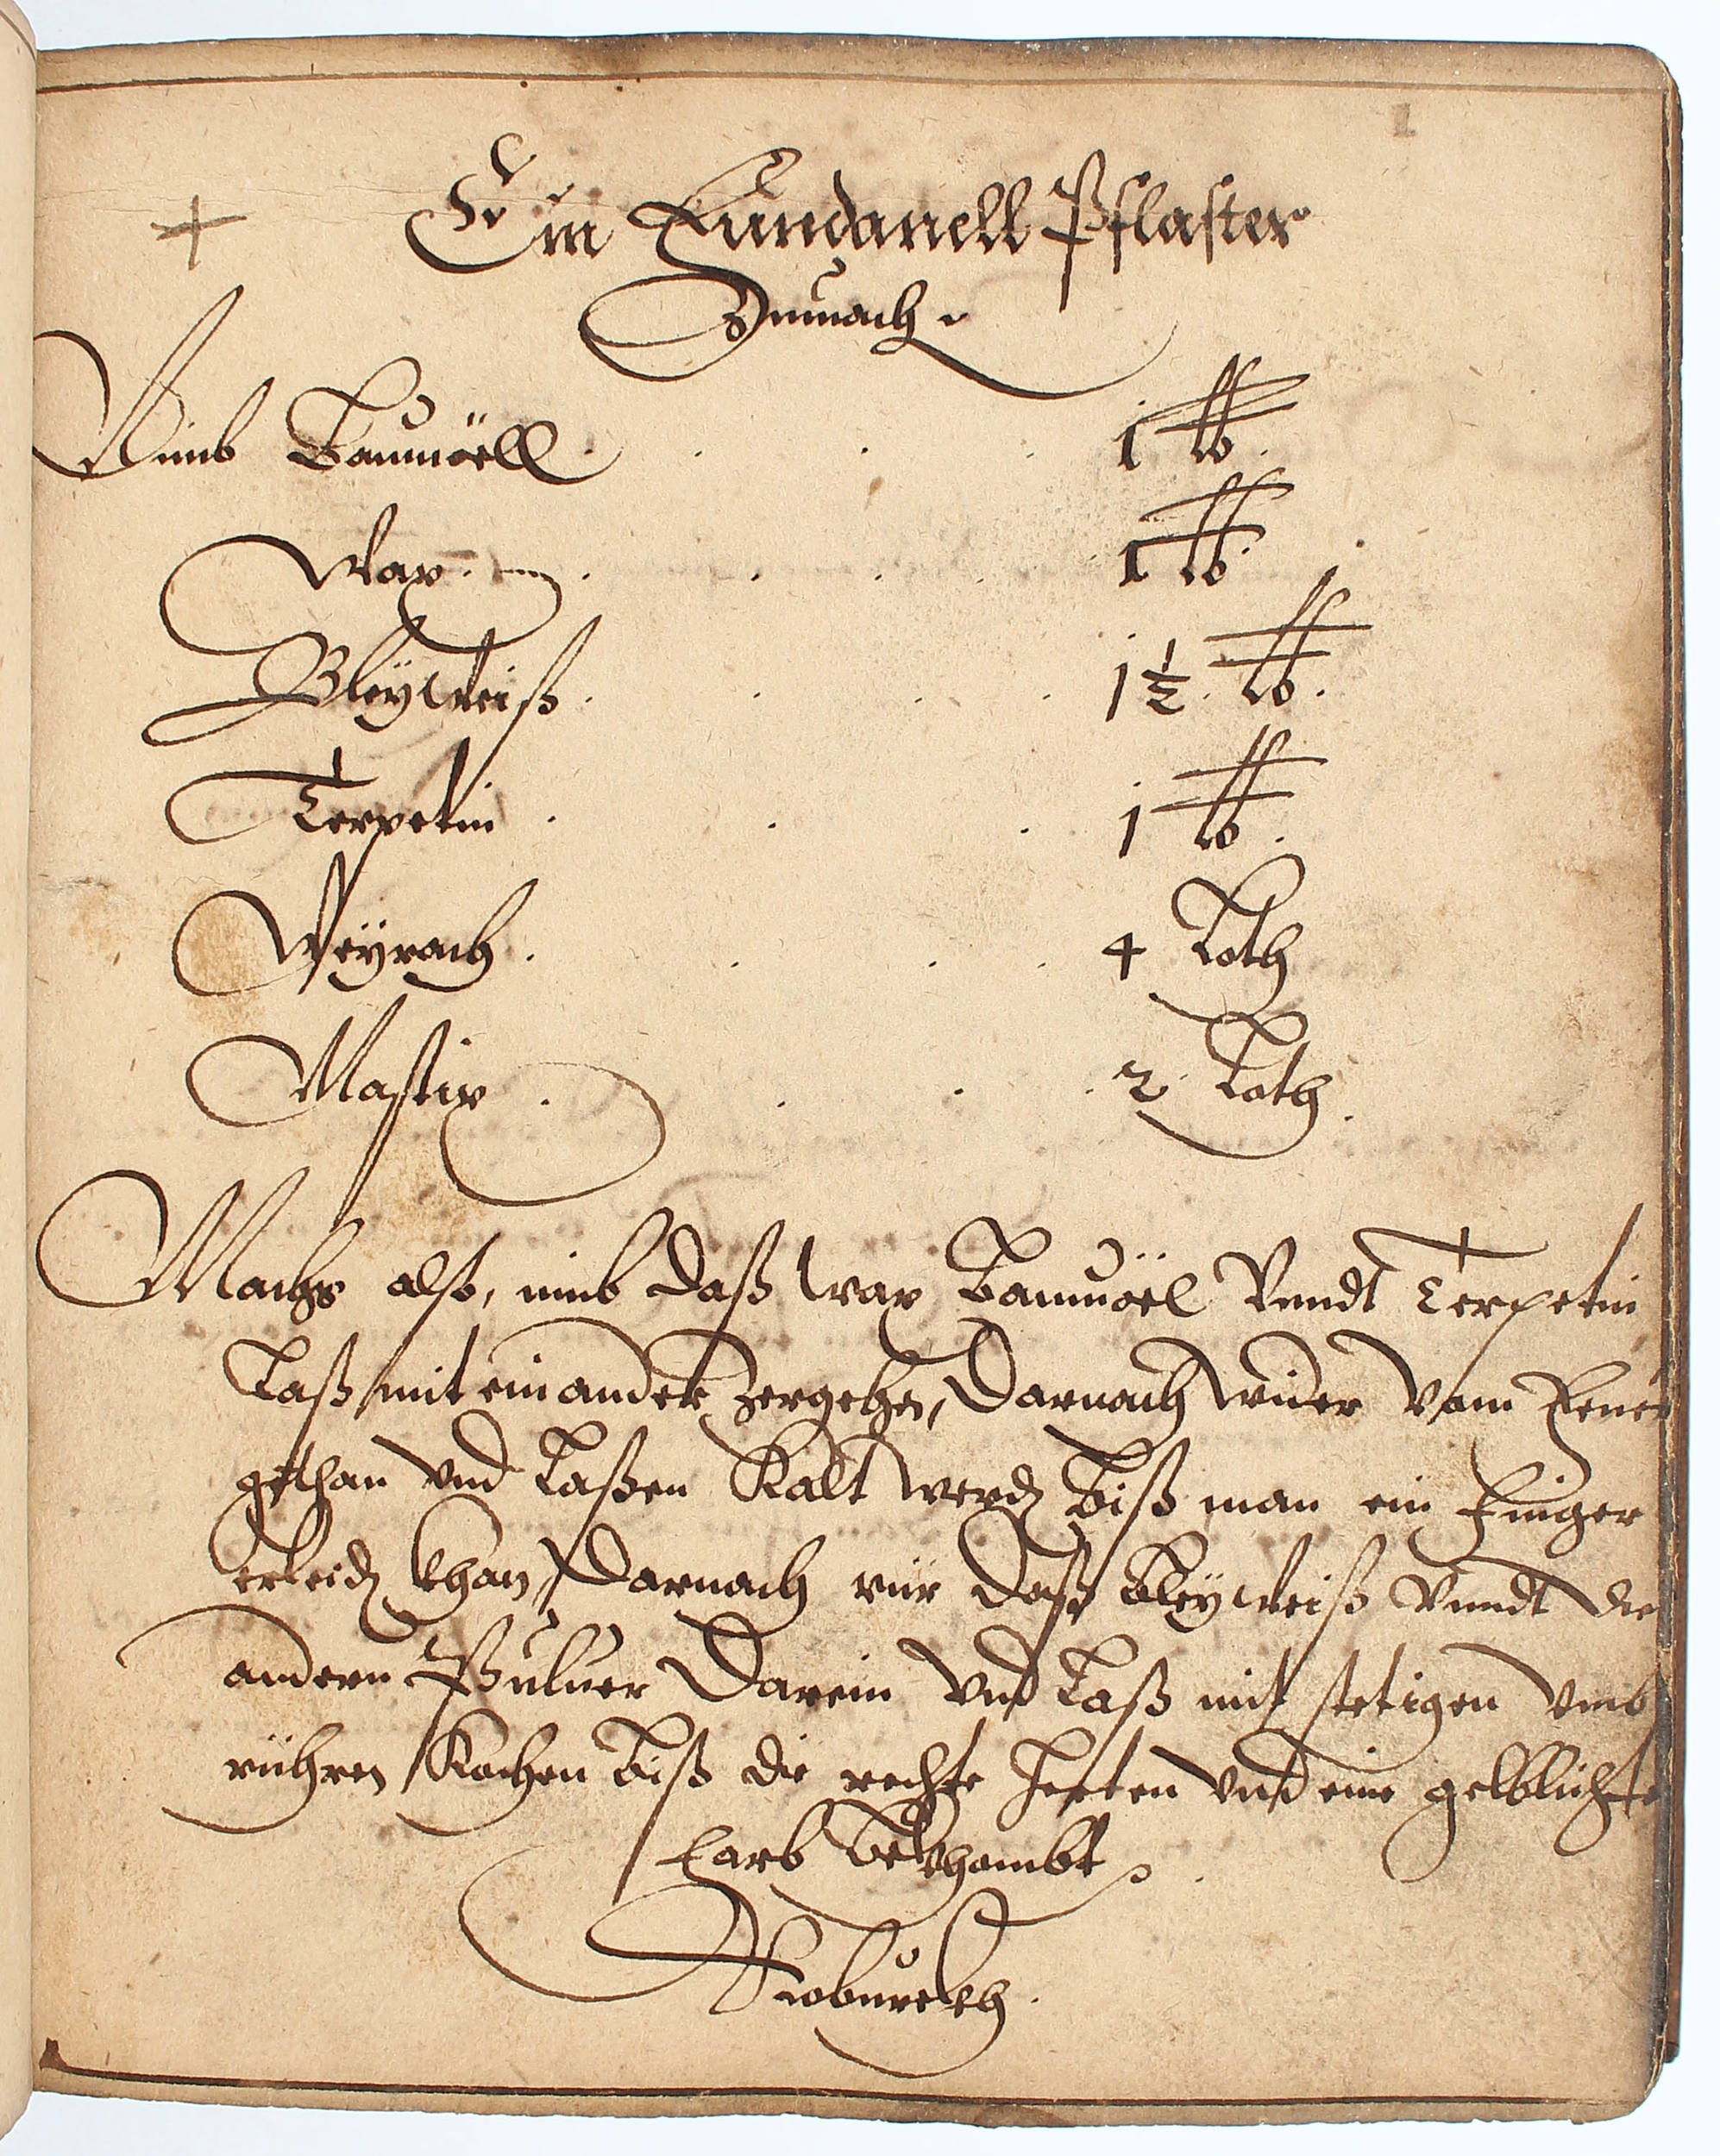 1
Ein Fundanell Pflaster
Zumach
Nimb Baumöell 1 lb
Wax 1 lb
Bleÿweiß 1 ½ lb
Terpetin 1 lb
Weÿrach 4 Loth
Mastix 2 Loth
Machs also, nimb daß wax Baumöel Vnndt Terpetin
Laß mit ein ander zergehen, Darnach wider Vom Feuer
gethan vnd Laßen Kalt werdn biß man ein Finger
erleidn khan, Darnach rür daß bleÿweiß Vnndt die
andern Puluer Darein vnd Laß mit stetigen vmb
rühren Kochen biß die rechte herten vnd eine gelblichte
Farb bekhombt